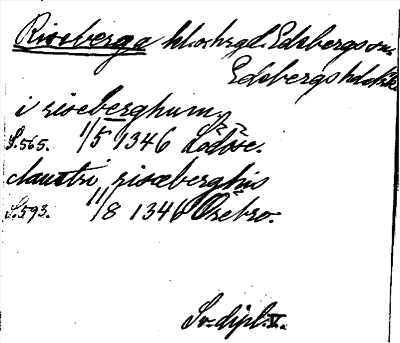 Riseberga kl.o.hrgd. Edsbergs sn.
Edsbergs hd.
i riseberghum.
S.565. 1/5 1346 Lödöse.
claustri risæberghis
S.593. 11/8 1346 Örebro.
Sv. dipl. V.